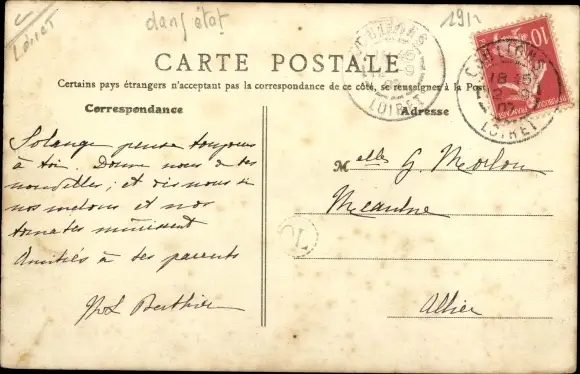 Loiret
dans état
191
CARTE POSTALE
Certains pays étrangers n'acceptent pas la correspondance de ce côté, se renseigner à la Poste
Correspondance
Adresse
LOIRET
10
LOIRET
Solange pense toujours
à toi. Donne nous de tes
nouvelles ; et dis nous si
nos melons et nos
tomates mûrissent
Amitiés à tes parents
Berthier
Melles G Morlon
Meaulne
Allier